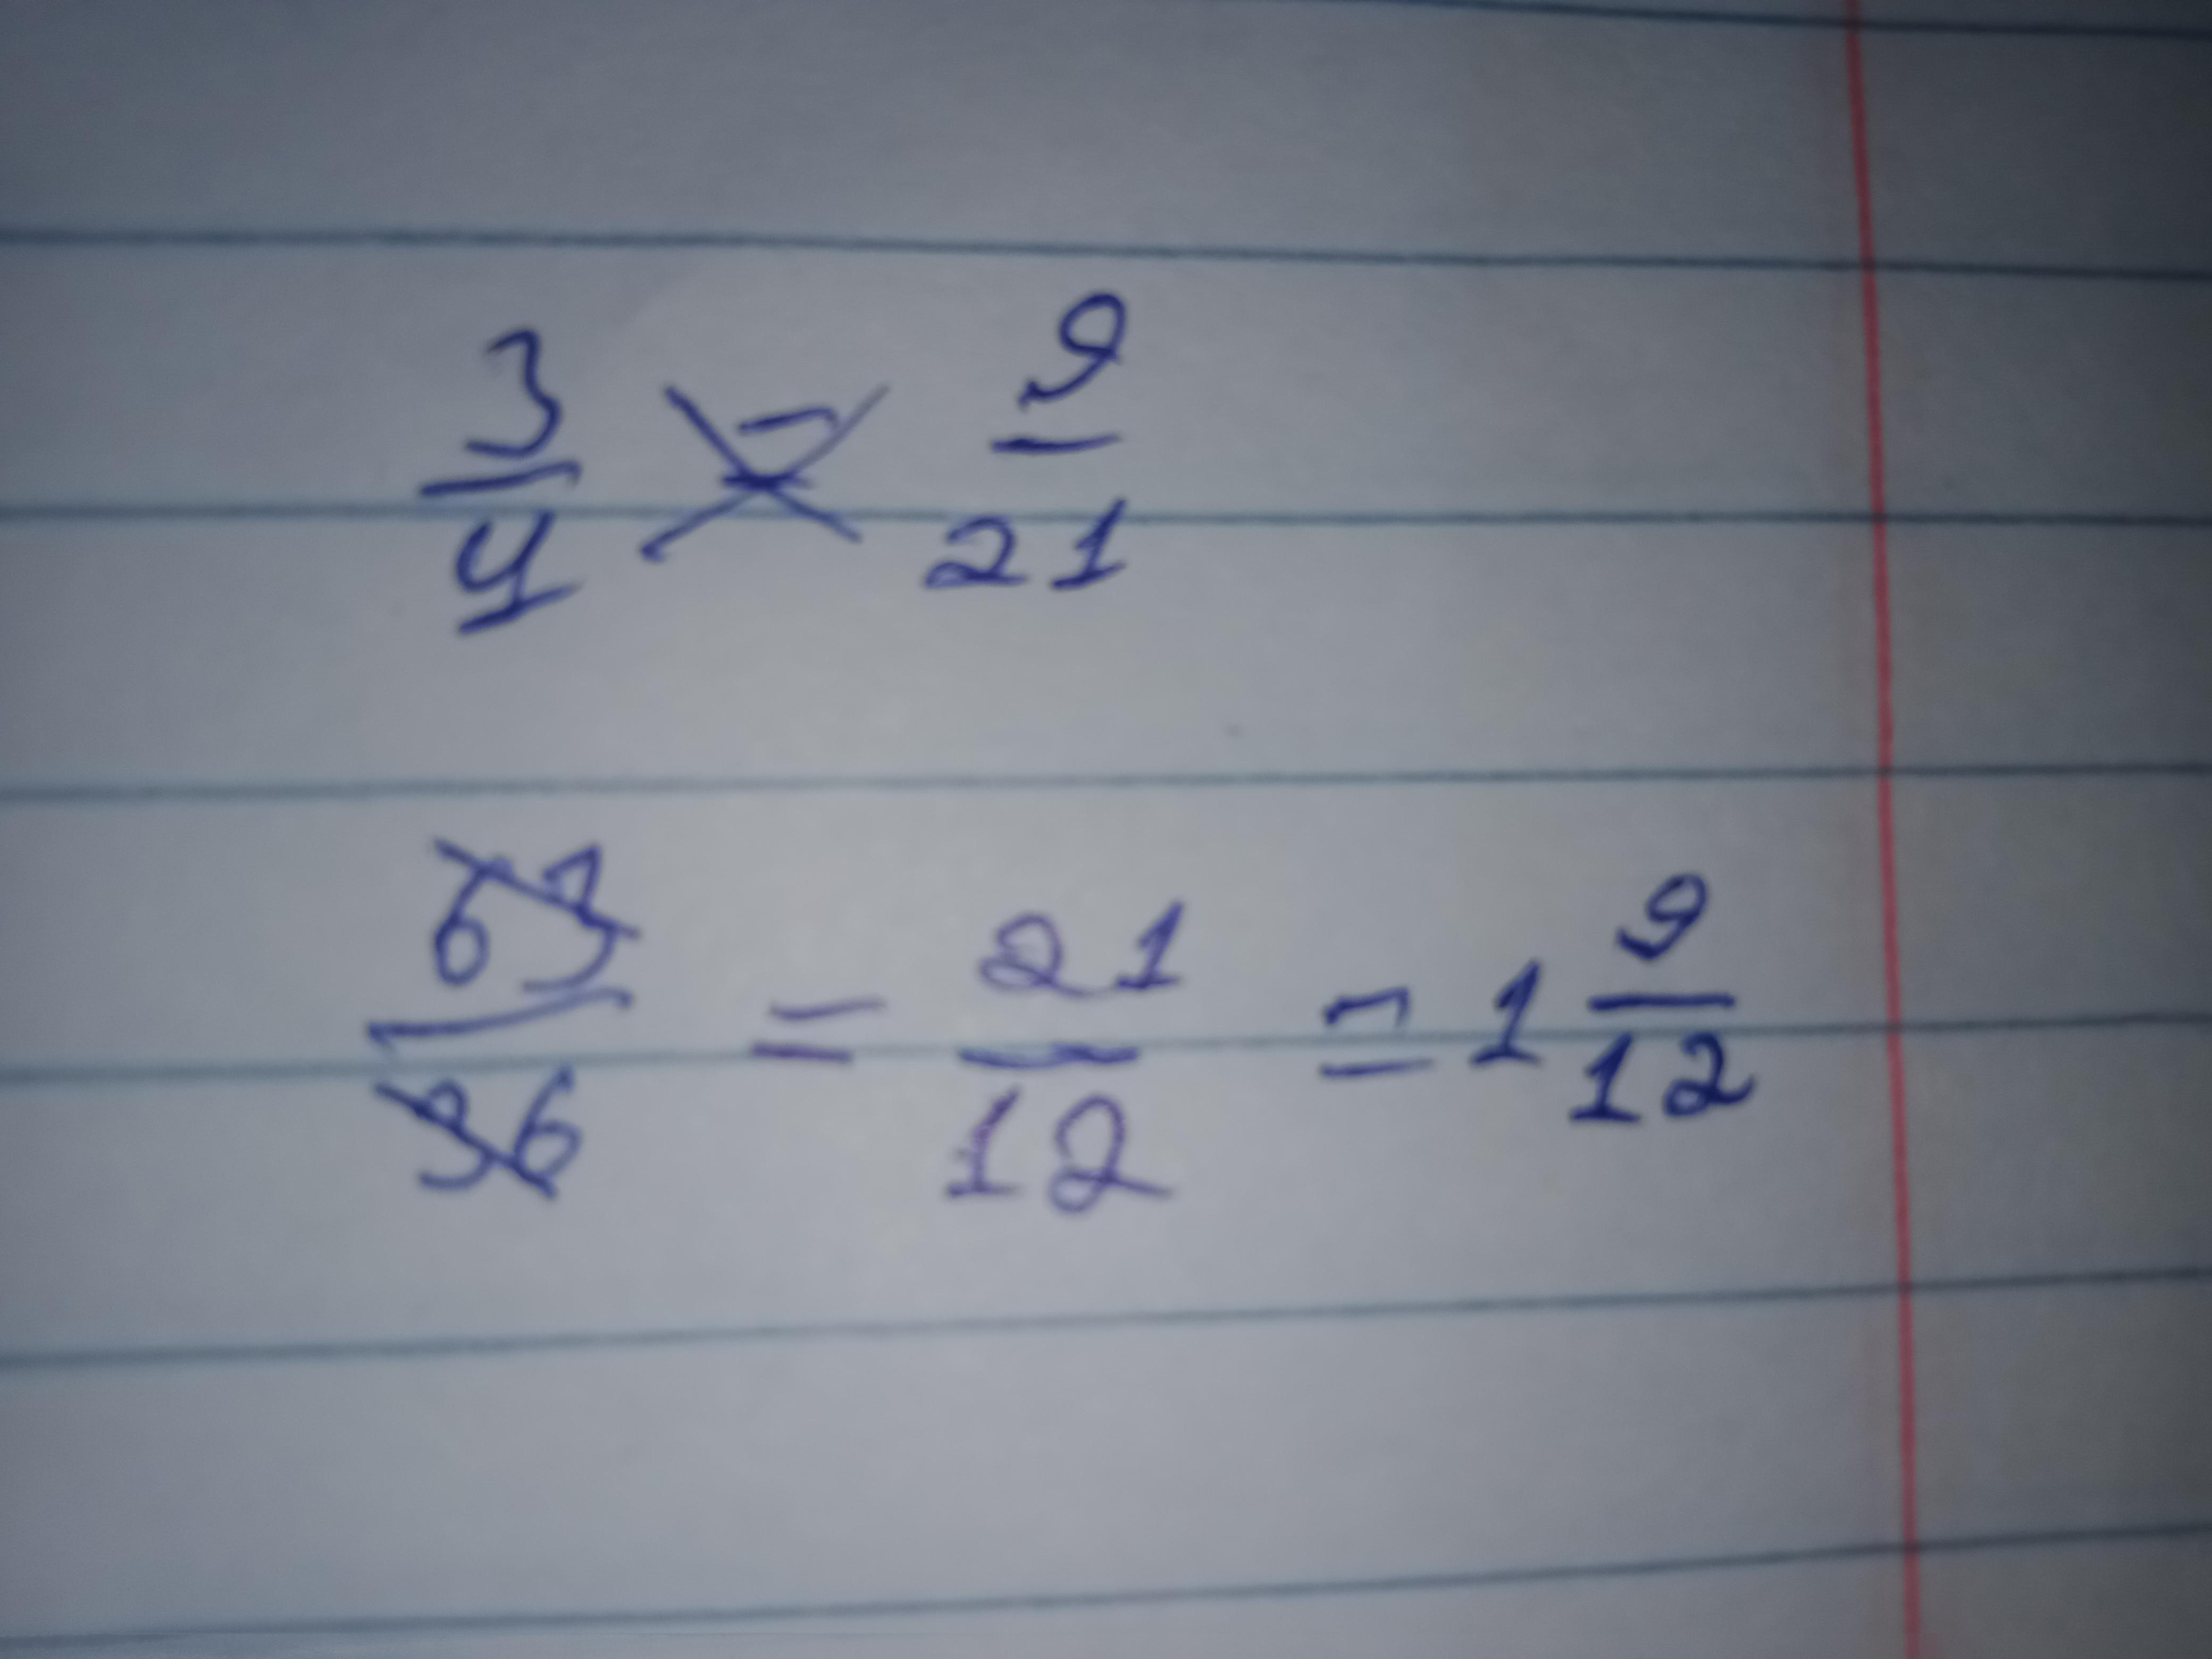 3/4 × = 9/21
63/36 = 21/12 = 1 9/12